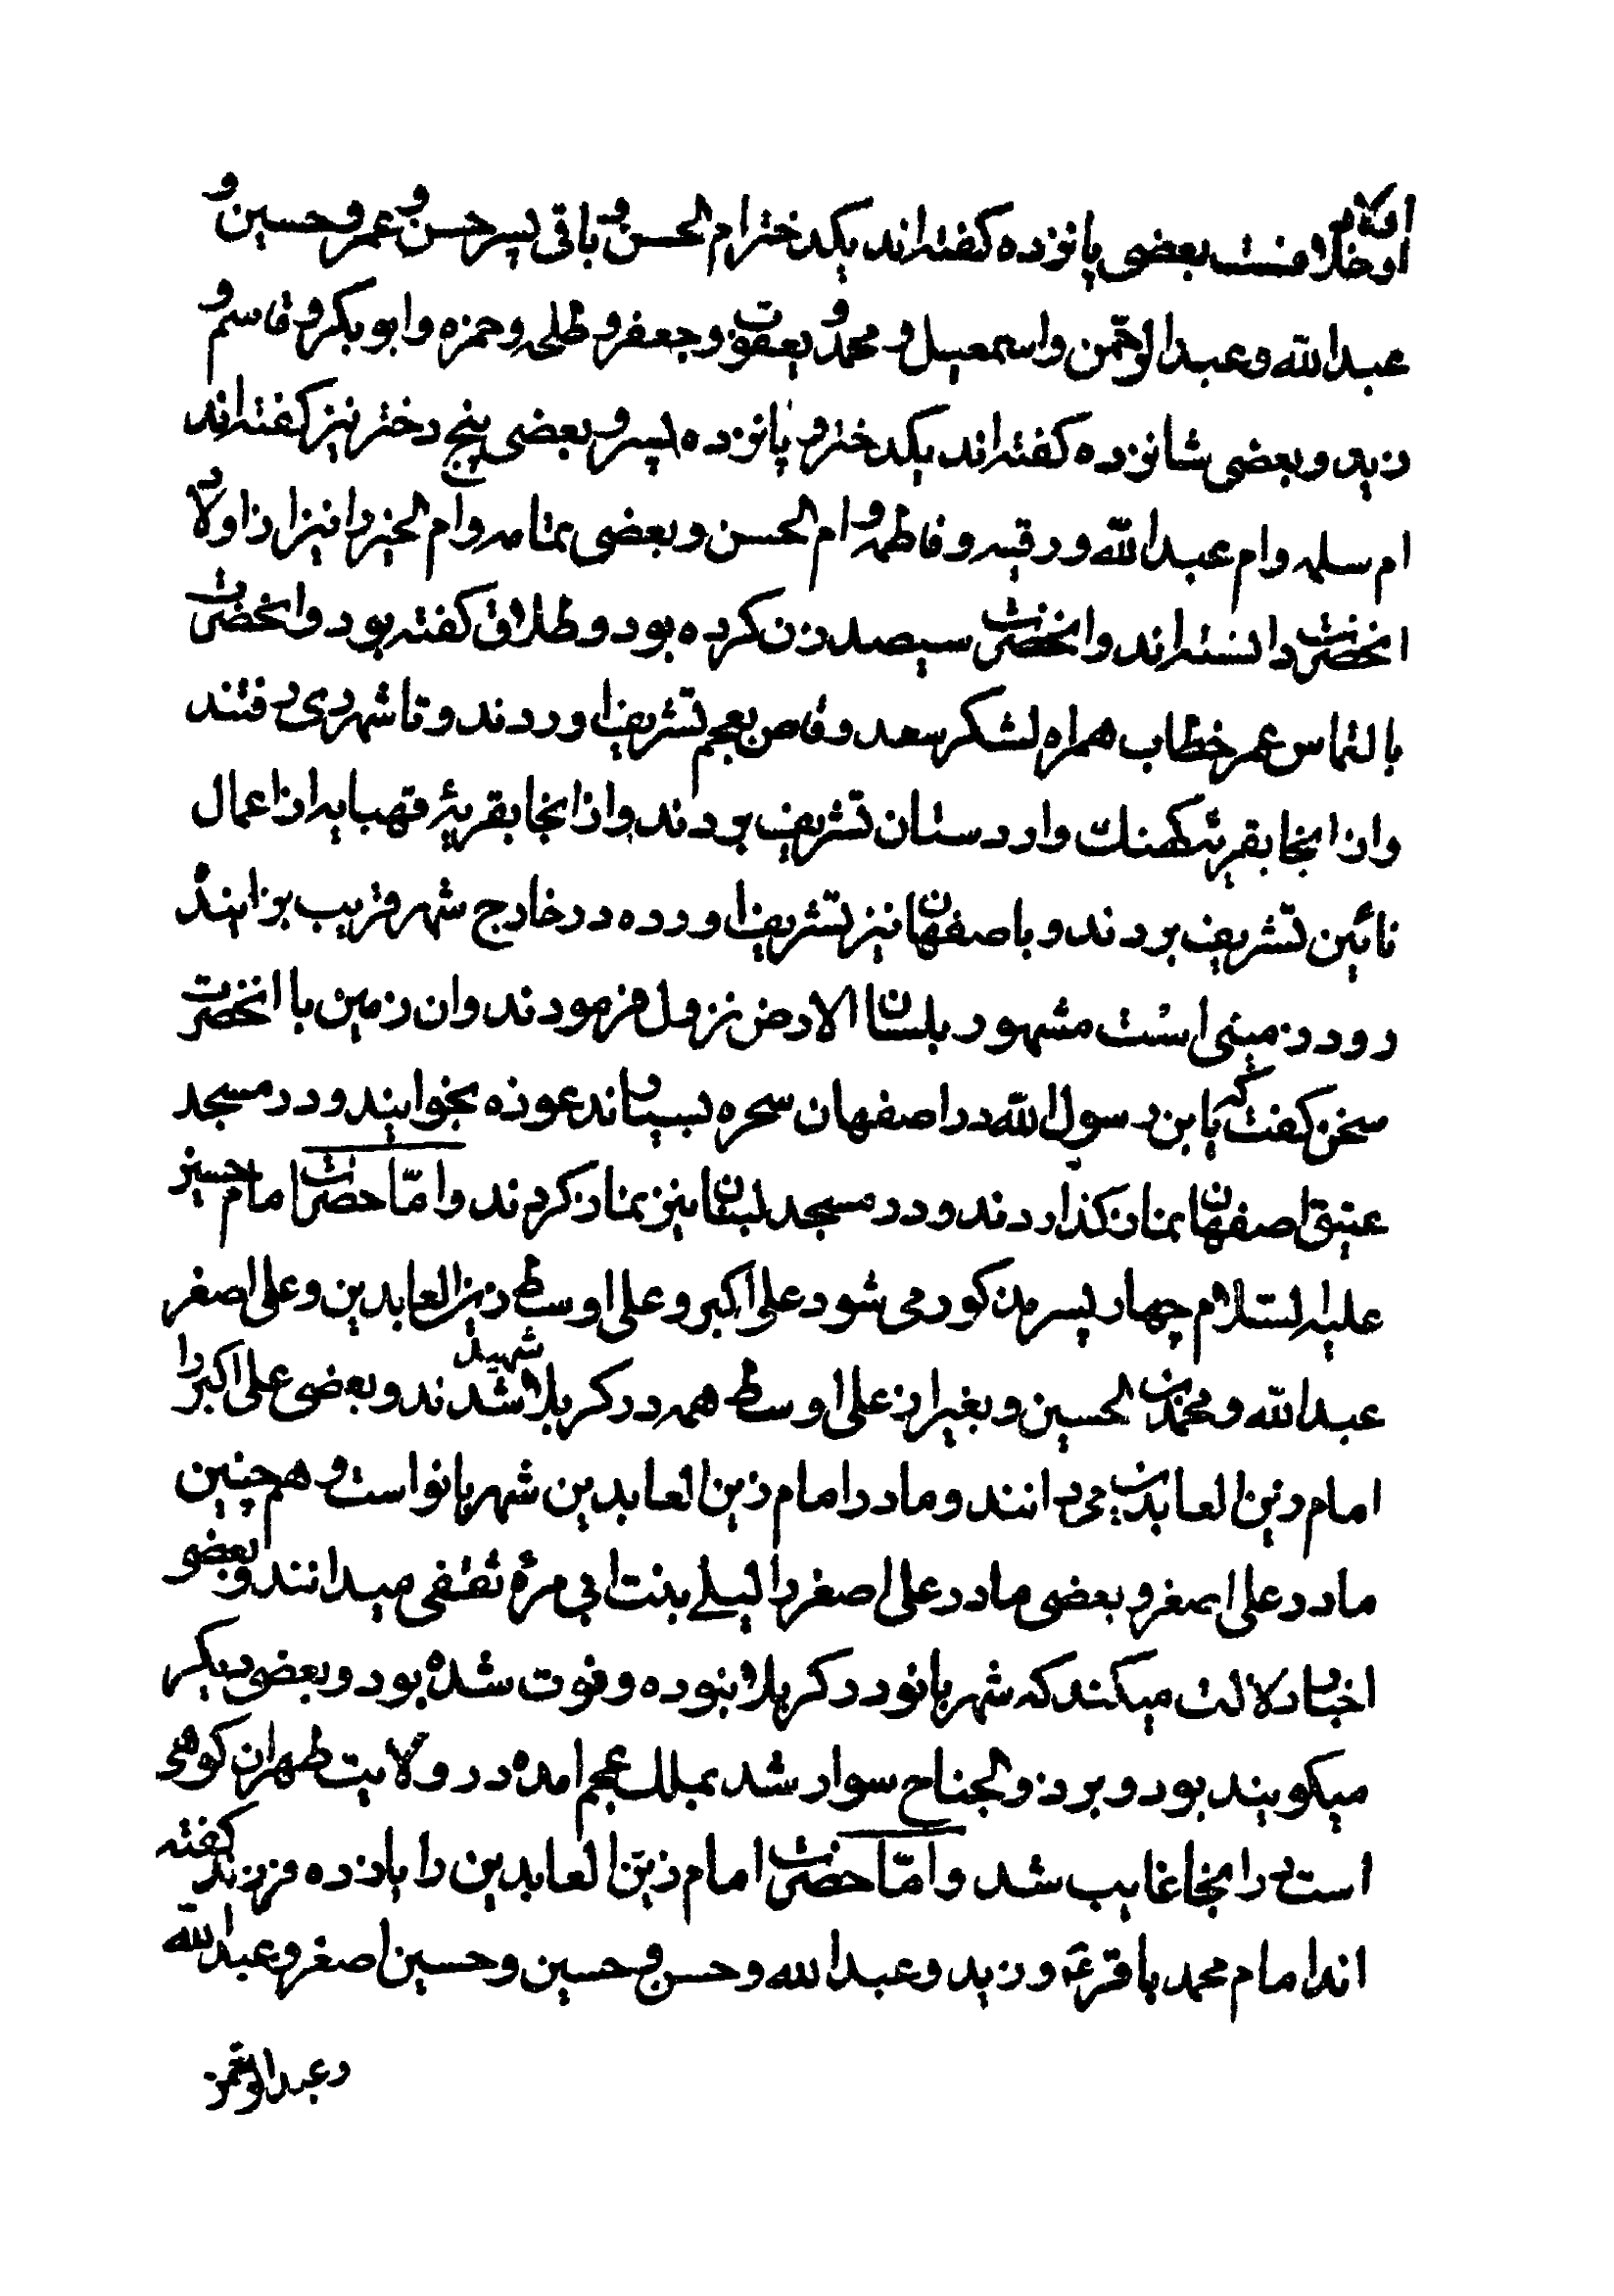 اولاد او خلافست بعضی پانزده کفته‌اند یکدختر ام الحسن و باقی پسر حسن و عمر و حسین و
عبدالله و عبدالرحمن و اسمعیل و محمد و یعقوب و جعفر و طلحه و حمزه و ابوبکر و قاسم و
زید و بعضی شانزده کفته‌اند یکدختر و پانزده پسر و بعضی پنج دختر نیز کفته‌اند
ام سلمه و ام عبدالله و رقیه و فاطمه و ام الحسن و بعضی تمامه و ام الخیر را نیز از اولاد
انحضرت دانسته‌اند و انحضرت سیصد زن کرده بود و طلاق کفته بود و انحضرت
بالتماس عمر خطاب همراه لشکر سعد وقاص بعجم تشریف اوردند و تا شهر ری رفتند
و از انجا بقریه کهنک و اردستان تشریف بردند و از انجا بقریۀ قهپایه از اعمال
نائین تشریف بردند و باصفهان نیز تشریف اورده در خارج شهر قریب بزاینده
رود زمینی است مشهور بلسان الارض نزول فرمودند و ان زمین با انحضرت
سخن کفت که یابن رسول الله در اصفهان سحره بسیاراند عوذه بخوانید و در مسجد
عتیق اصفهان نماز کذاردند و در مسجد لبنان نیز نماز کردند و امّا حضرت امام حسین
علیه السّلام چهار پسر مذکور می شود علی اکبر و علی اوسط زین العابدین و علی اصغر
عبدالله و محمد بن الحسین و بغیر از علی اوسط همه در کربلا شهید شدند و بعضی علی اکبر را
امام زین العابدین می دانند و مادر امام زین العابدین شهربانو است و همچنین
مادر علی اصغر و بعضی مادر علی اصغر را لیلی بنت ابی مرۀ ثقفی میدانند و بعضو
اخبار دلالت میکند که شهربانو در کربلا نبوده و فوت شده بود و بعضی دیکر
میکویند بود و بر ذوالجناح سوار شد بملک عجم امده در ولایت طهران کوهی
است در انجا غایب شد و امّا حضرت امام زین العابدین را یازده فرزند کفته
اند امام محمد باقر ع و زید و عبدالله و حسن و حسین و حسین اصغر و عبدالله
و عبدالرحمن